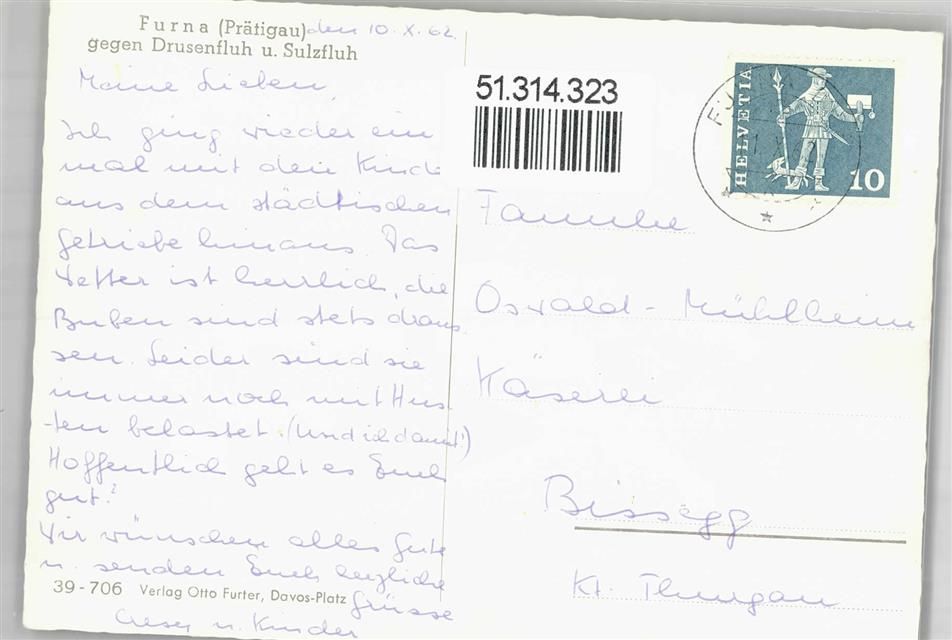 Furna (Prätigau) den 10. X. 62.
gegen Drusenfluh u. Sulzfluh
Meine Lieben,
Ich ging wieder ein
mal mit den Kinde
aus dem städtischen
Getriebe hinaus. Das
Wetter ist herrlich, die
Buben sind stets draus
sen. Leider sind sie
immer noch mit Hus-
-ten belastet. (Und ich damit!)
Hoffentlich geht es Euch
gut?
Wir wünschen alles Gute
u. senden Euch herzliche
Grüsse
u. Kinder
39-706 Verlag Otto Furter, Davos-Platz
51.314.323
HELVETIA
10
Familie
Oswald-Mühlheim
Käserei
Bissegg
Kt. Thurgau